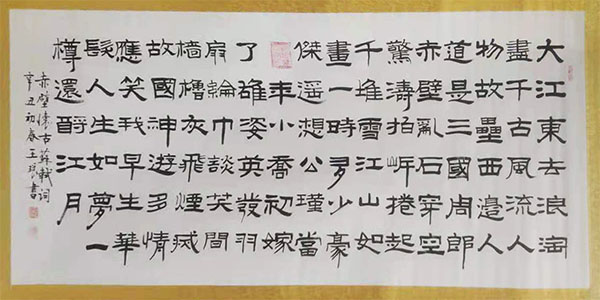 大江東去浪淘
盡千古風流人
物故壘西邊人
道是三國周郎
赤壁亂石穿空
驚濤拍岸捲起
千堆雪江山如
畫一時多少豪
傑遥想公瑾當
年小喬初嫁
了雄姿英發羽
扇綸巾談笑間
檣櫓灰飛煙滅
故國神遊多情
應笑我早生華
髮人生如夢一
樽還酹江月
赤壁懷古蘇軾詞
辛丑初春王書